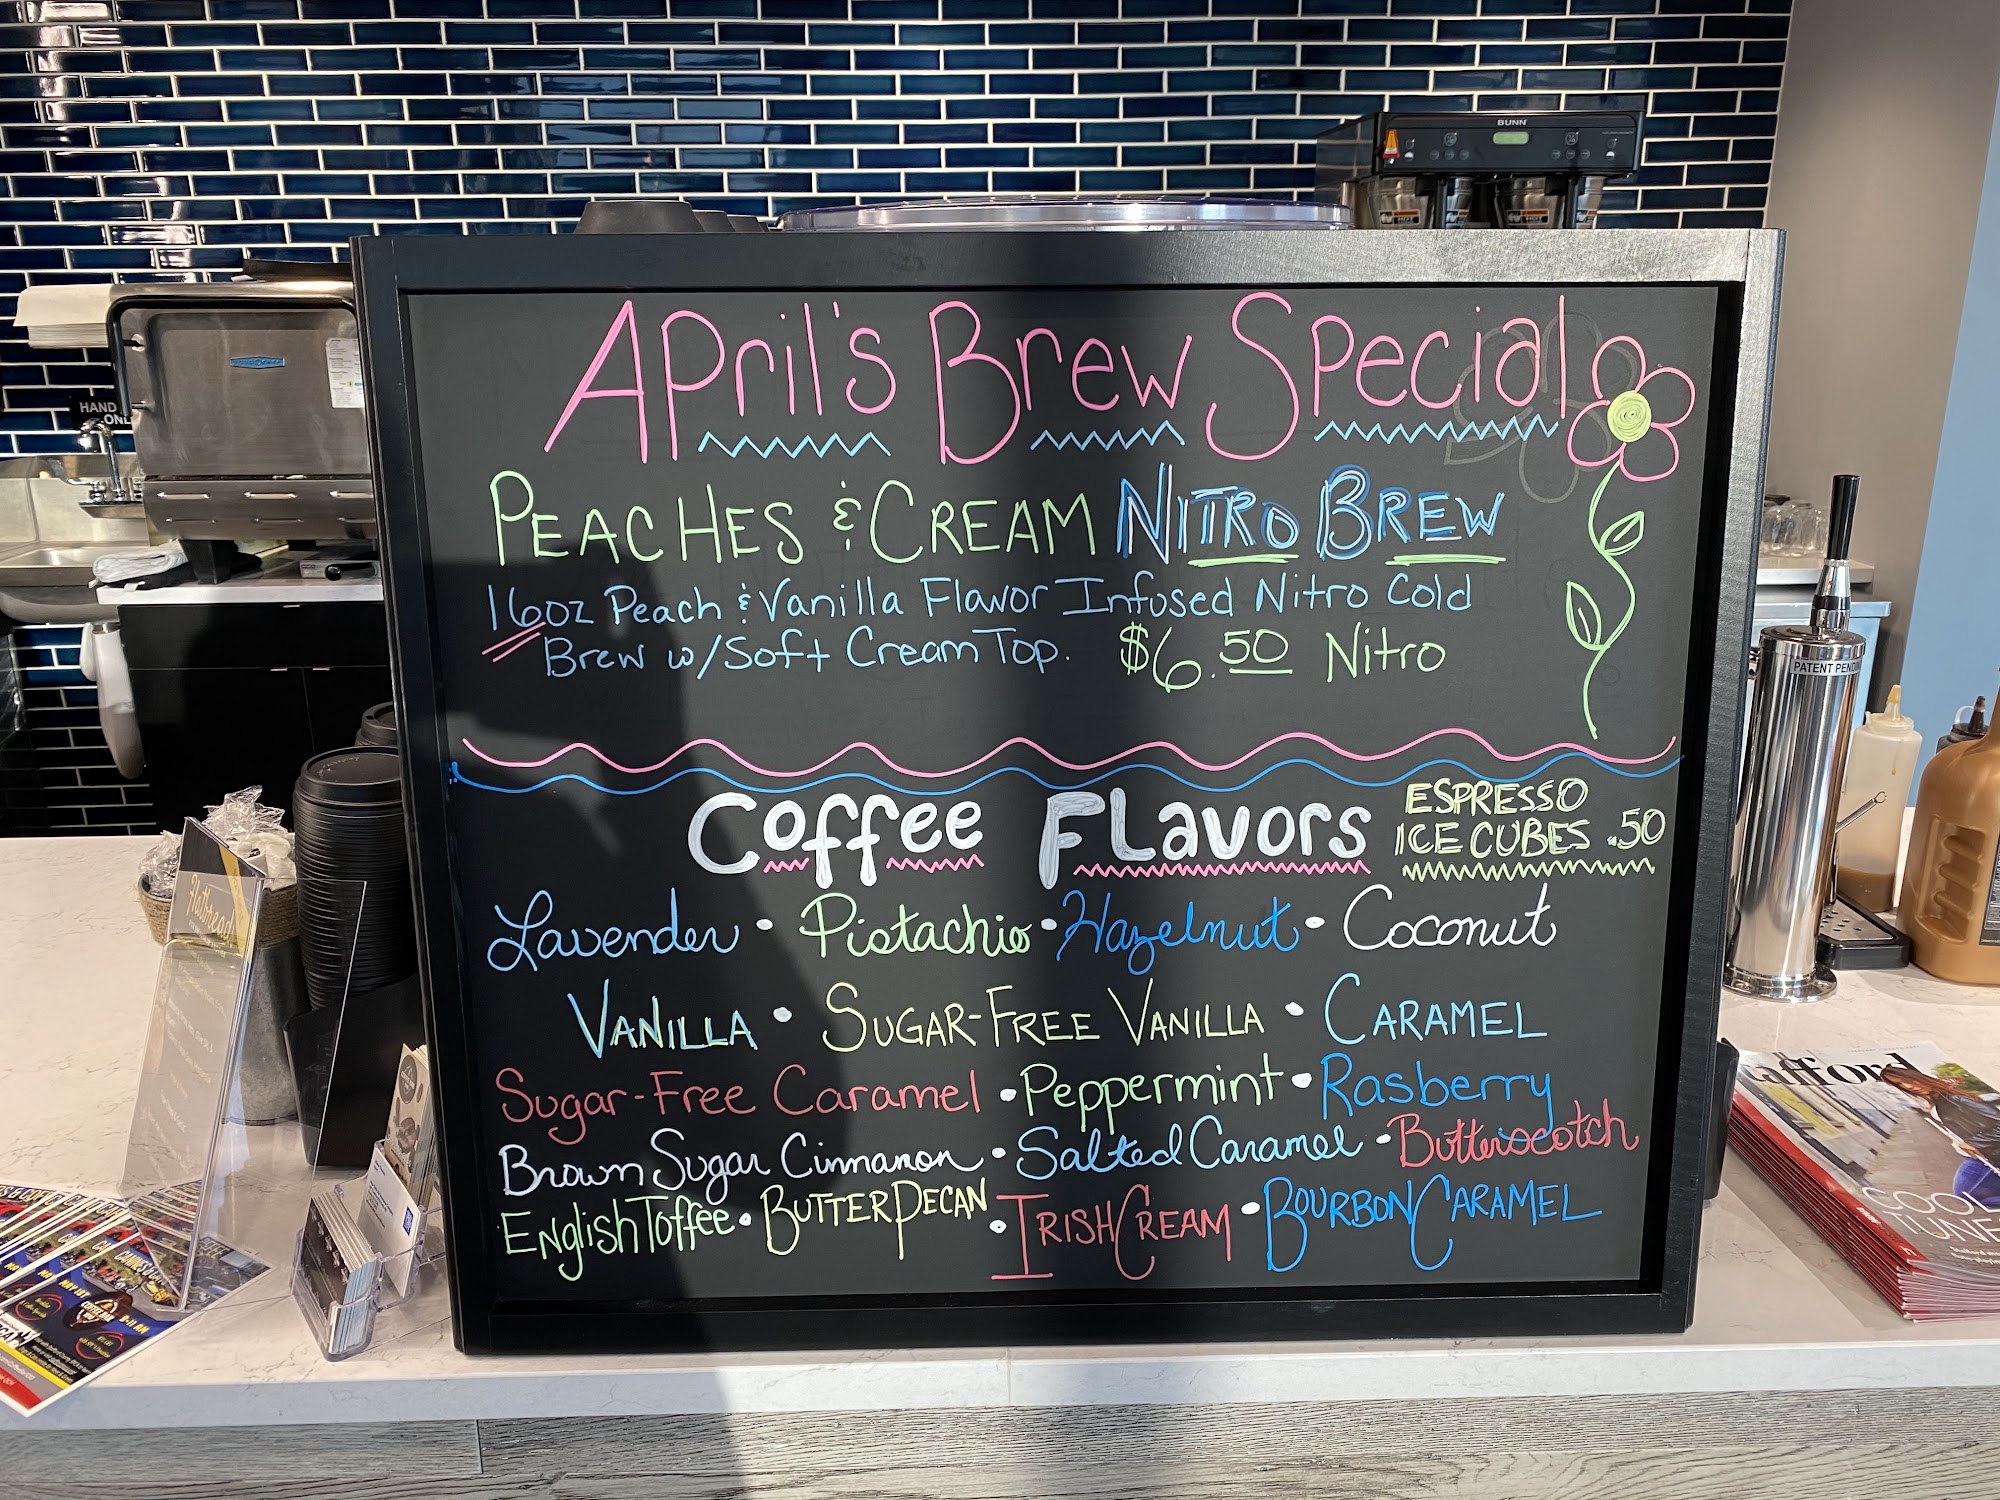 BUNN
HAND
ONL
April's Brew Special
PEACHES & CREAM NITRO BREW
16oz Peach & Vanilla Flavor Infused Nitro Cold
Brew w/Soft Cream Top. $6.50 Nitro
Coffee Flavors
ESPRESSO
ICE CUBES .50
Lavender • Pistachio • Hazelnut • Coconut
VANILLA • SUGAR-FREE VANILLA • CARAMEL
Sugar-Free Caramel • Peppermint • Rasberry
Brown Sugar Cinnamon • Salted Caramel • Butterscotch
English Toffee • BUTTER PECAN • IRISH CREAM • BOURBON CARAMEL
PATENT PENDI
flatbread
afford
COOL
TUNE